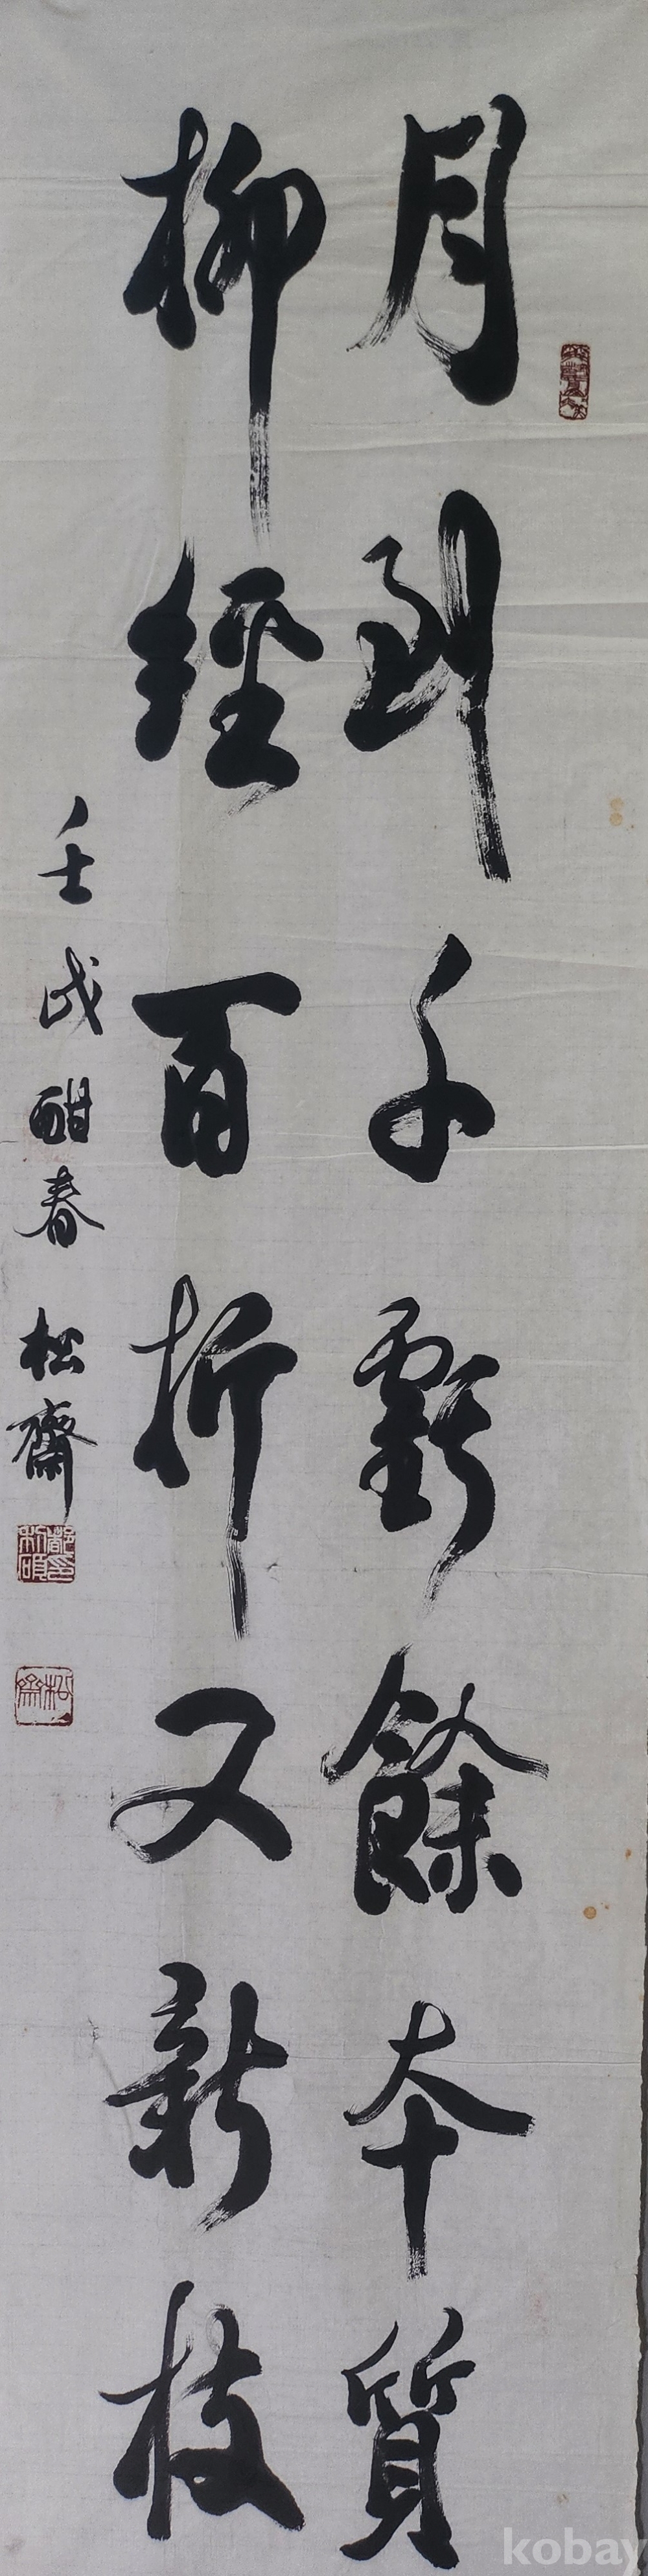 月到千虧餘本質
柳經百折又新枝
壬戌酣春 松齋
kobay